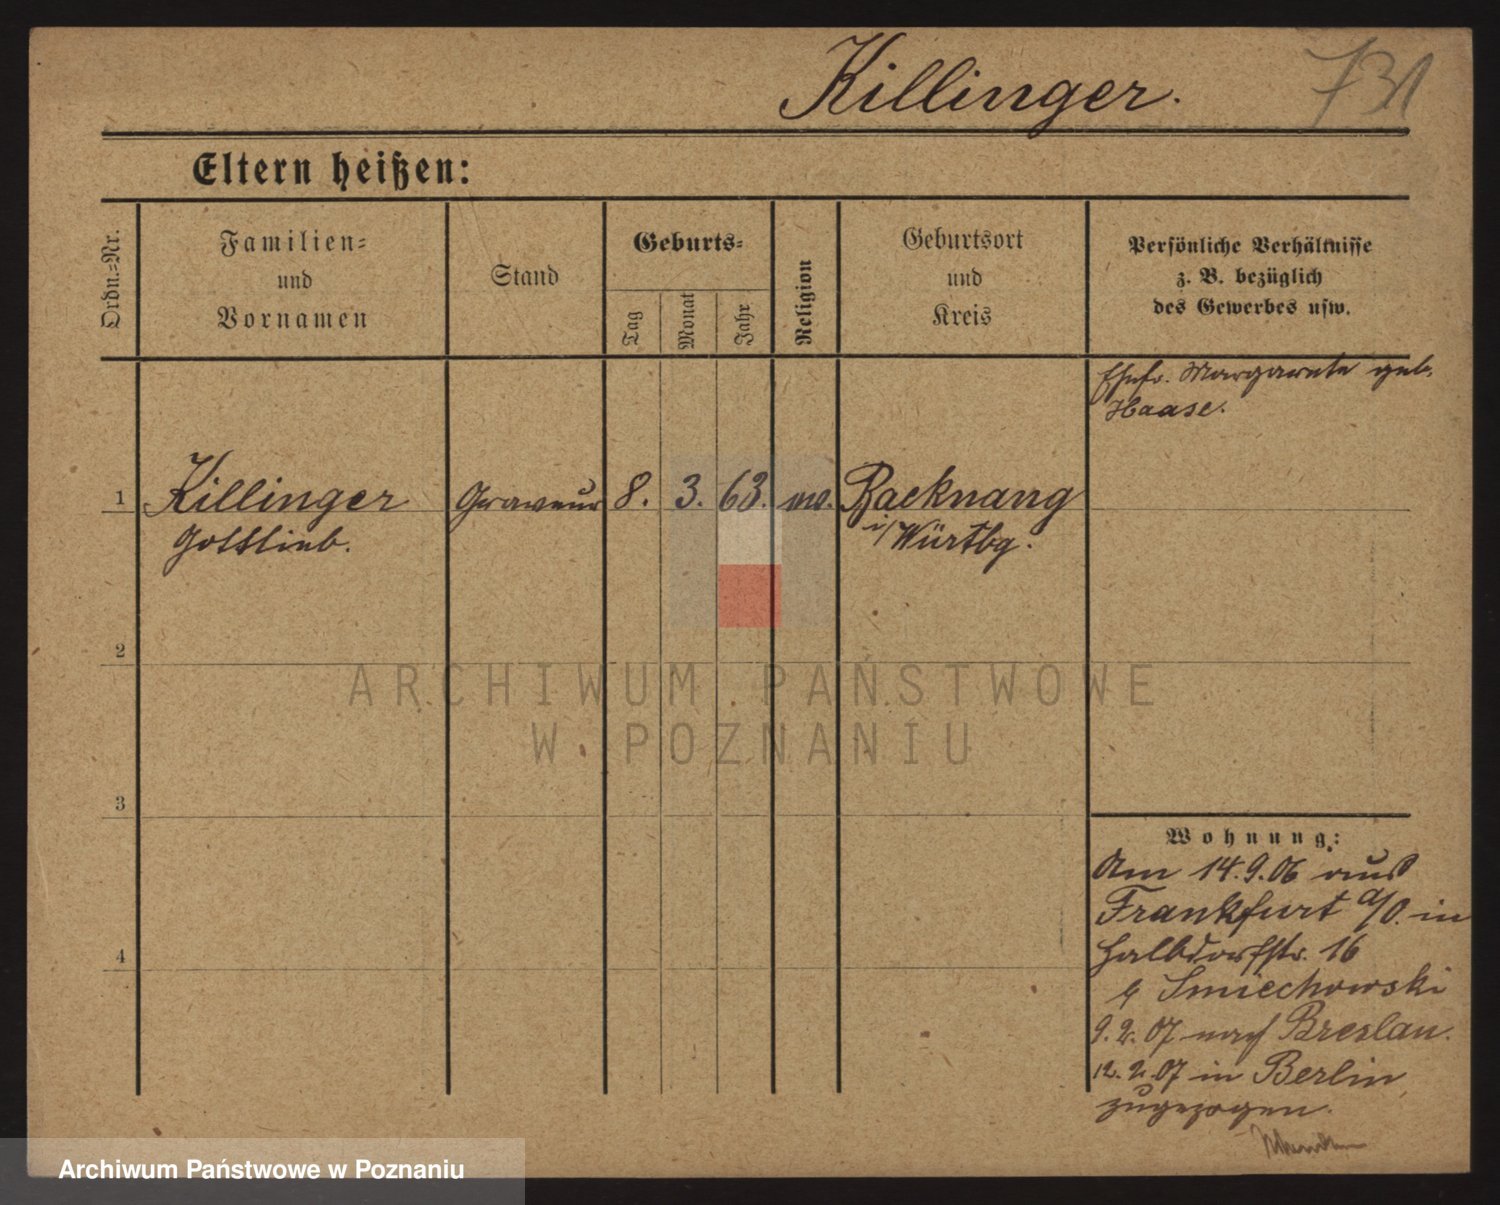 Killinger. 731
Eltern heißen:
Ordn.=Nr.
Familien=
und
Vornamen
Stand
Geburts=
Tag
Monat
Jahr
Religion
Geburtsort
und
Kreis
Persönliche Verhältnisse
z. B. bezüglich
des Gewerbes usw.
Ehefr. Margarete geb.
Haase.
1 Killinger Graveur 8. 3. 63. ev. Backnang
Gottlieb. i/Württbg.
2
3
4
Wohnung:
Am 14.9.06 aus
Frankfurt a/O. in
Halbdorfstr. 16
b Smiechowski
9.2.07 nach Breslau.
12.2.07 in Berlin
zugezogen.
ARCHIWUM PAŃSTWOWE
W POZNANIU
Archiwum Państwowe w Poznaniu